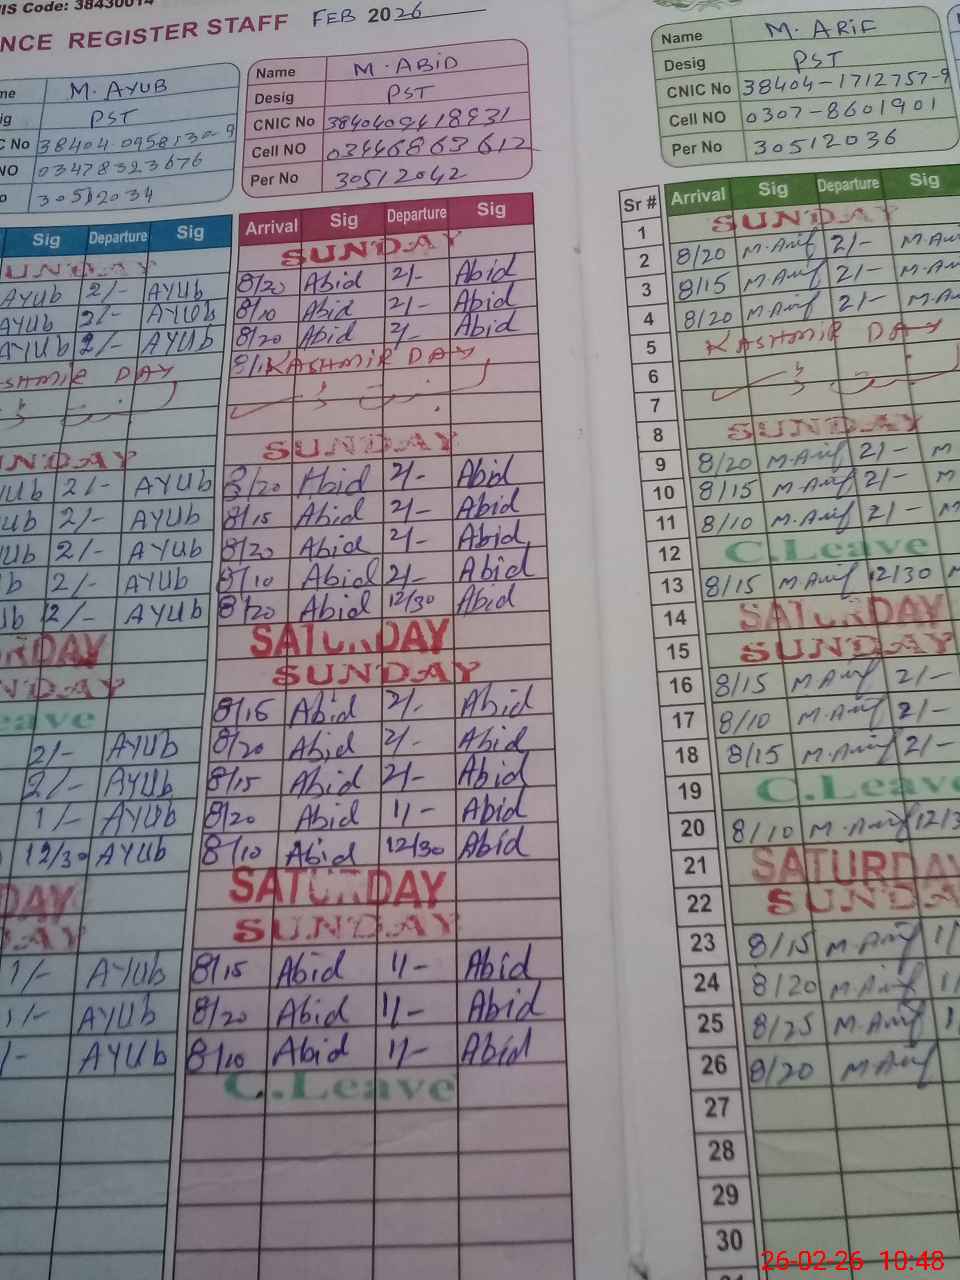 IS Code: 38430014
NCE REGISTER STAFF FEB 2026
me M. AYUB
ig PST
C No 38404 0958130-9
NO 03478323676
o 30512034
Sig Departure Sig
UNDAY
AYUb 2/- AYUb
AYUb 2/- AYUb
AYUb 2/- AYUb
SHMIR DAY
UNDAY
YUb 2/- AYUb
Ub 2/- AYUb
Ub 2/- AYUb
b 2/- AYUb
Ub 2/- AYUb
RDAY
NDAY
eave
2/- AYUb
2/- AYUb
1/- AYUb
12/30 AYUb
DAY
AY
1/- AYUb
1/- AYUb
/- AYUb
Name M. ABiD
Desig PST
CNIC No 3840409418931
Cell NO 03446863612
Per No 30512042
Arrival Sig Departure Sig
SUNDAY
8/20 Abid 2/- Abid
8/10 Abid 2/- Abid
8/20 Abid 2/- Abid
8/1 KASHMIR DAY
SUNDAY
8/20 Abid 2/- Abid
8/15 Abid 2/- Abid
8/20 Abid 2/- Abid
8/10 Abid 2/- Abid
8/20 Abid 12/30 Abid
SATURDAY
SUNDAY
8/15 Abid 2/- Abid
8/20 Abid 2/- Abid
8/15 Abid 2/- Abid
8/20 Abid 1/- Abid
8/10 Abid 12/30 Abid
SATURDAY
SUNDAY
8/15 Abid 1/- Abid
8/20 Abid 1/- Abid
8/10 Abid 1/- Abid
C.Leave
Name M. ARiF
Desig PST
CNIC No 38404-1712757-9
Cell NO 0307-8601901
Per No 30512036
Sr # Arrival Sig Departure Sig
1 SUNDAY
2 8/20 M.Arif 2/- M.A
3 8/15 M.Arif 2/- M.A
4 8/20 M.Arif 2/- M.A
5 KASHMIR DAY
6
7
8 SUNDAY
9 8/20 M.Arif 2/- M
10 8/15 M.Arif 2/- M
11 8/10 M.Arif 2/- M
12 C.Leave
13 8/15 M.Arif 12/30 M
14 SATURDAY
15 SUNDAY
16 8/15 M Arif 2/-
17 8/10 M.Arif 2/-
18 8/15 M.Arif 2/-
19 C.Leave
20 8/10 M.Arif 12/3
21 SATURDAY
22 SUNDA
23 8/15 M.Arif 1/
24 8/20 M.Arif 1/
25 8/25 M.Arif 1
26 8/20 M.Arif
27
28
29
30
26-02-26 10:48